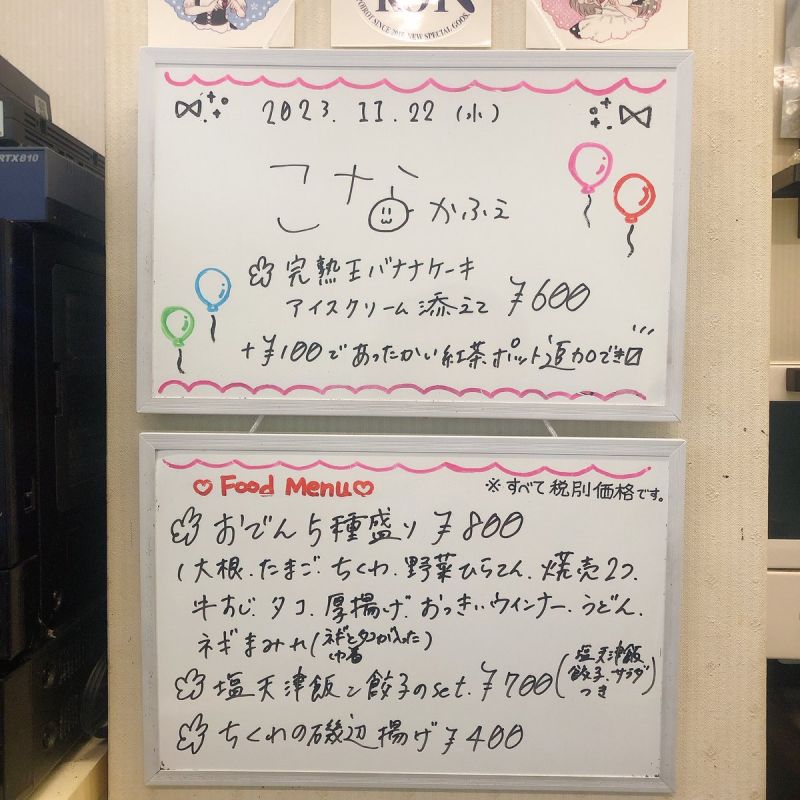 SINCE 2018 NEW SPECIAL GOODS.
RTX810
2023.11.22 (水)
こならかふぇ
完熟王バナナケーキ
アイスクリーム添えて ¥600
+¥100であったかい紅茶ポット追加でき〼
♡Food Menu♡ ※すべて税別価格です。
おでん5種盛り ¥800
(大根.たまご.ちくわ.野菜ひらてん.焼売2つ
牛すじ.タコ.厚揚げ.おっきいウィンナー.うどん.
ネギまみれ(ネギとタコが入った巾着)
塩天津飯と餃子のset.¥700(塩天津飯
餃子.サラダ
つき)
ちくわの磯辺揚げ ¥400